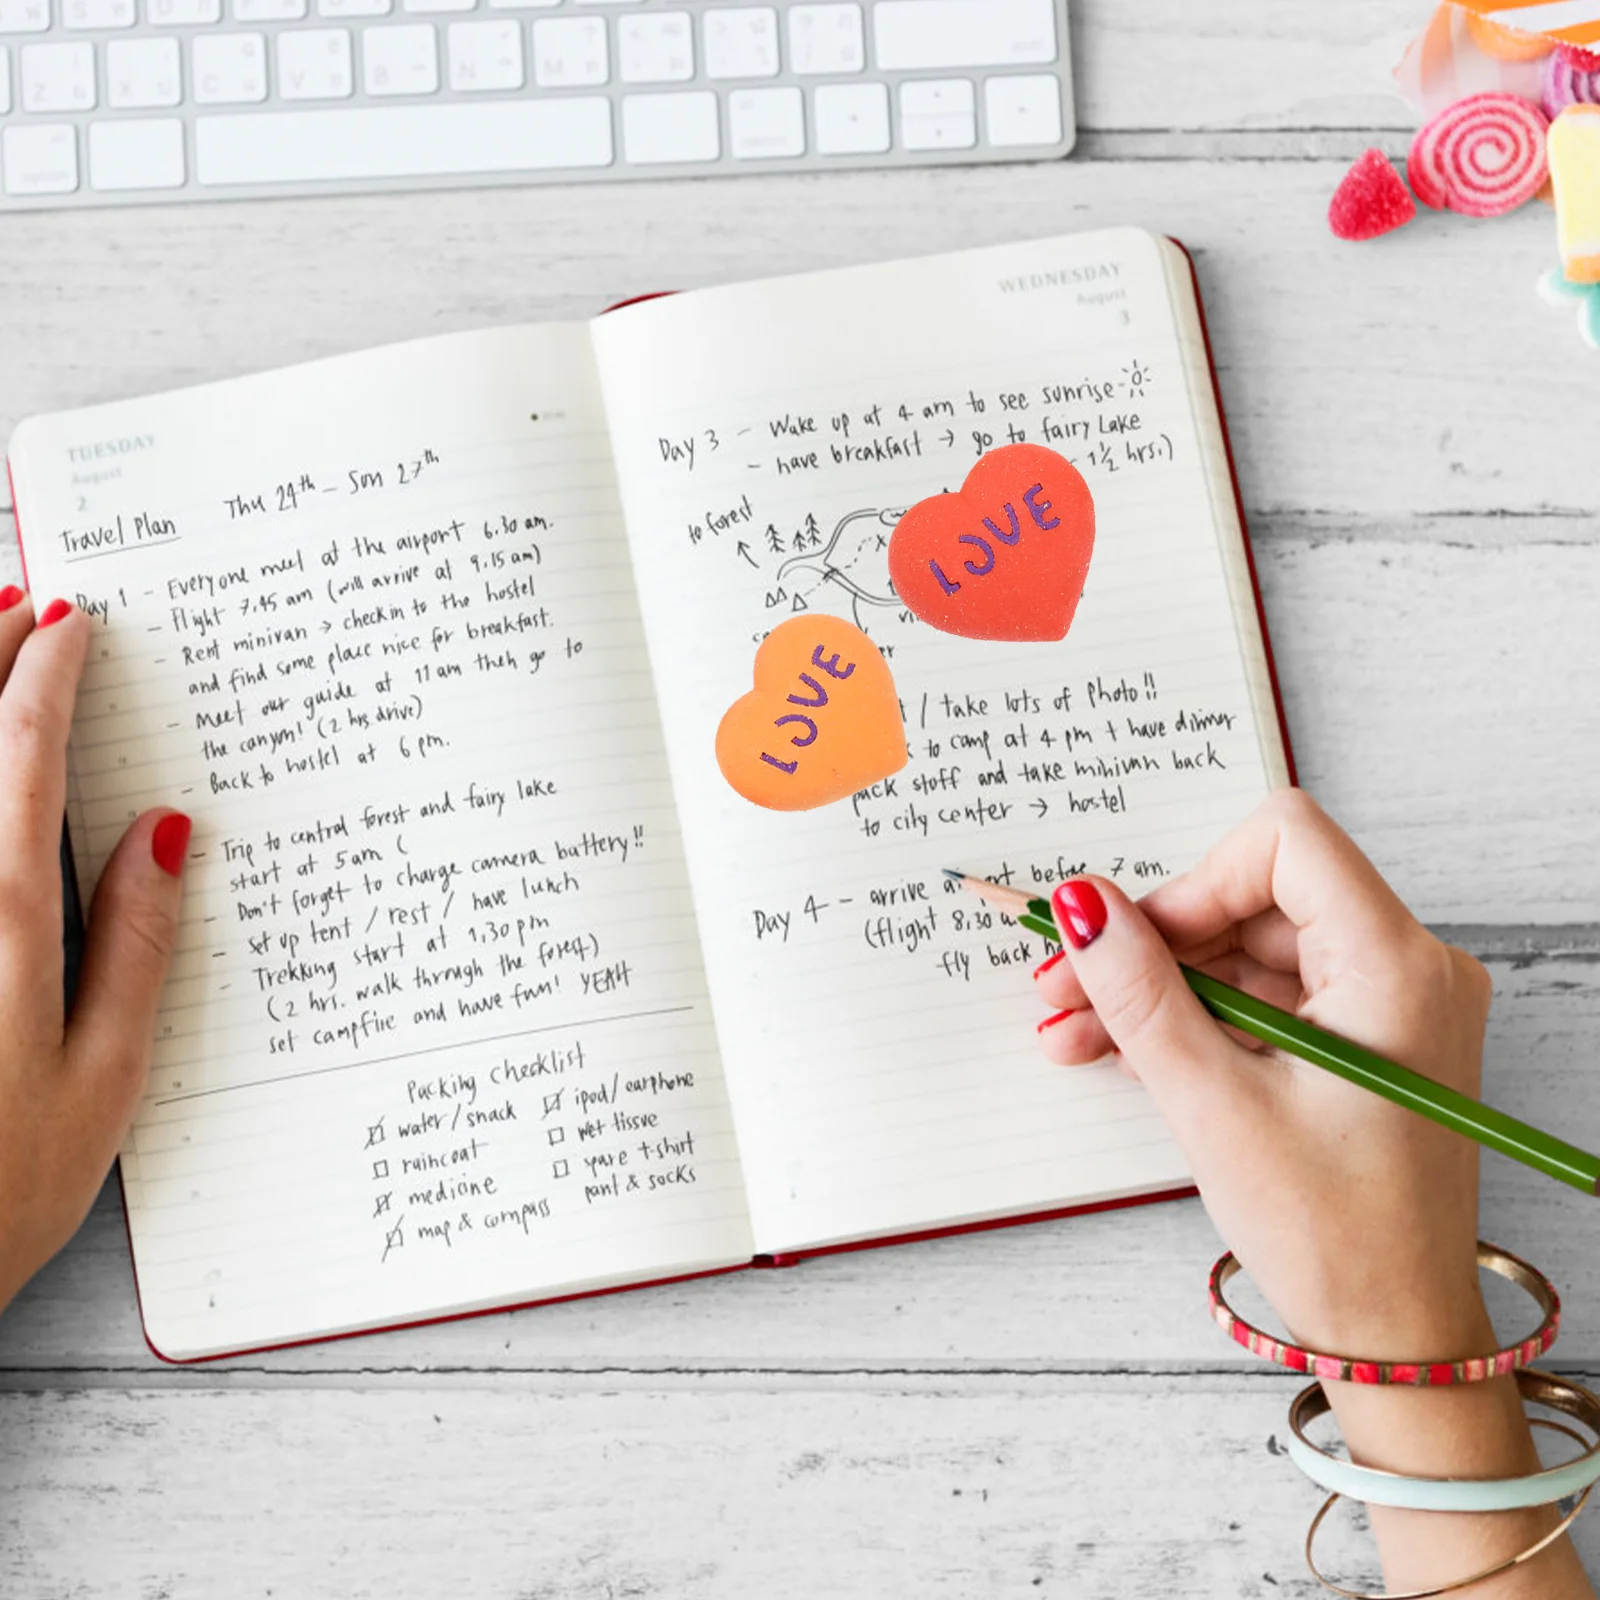 TUESDAY
August
2
Travel Plan
Thu 24th - Sun 27th
Day 1 - Everyone meet at the airport 6.30 am.
- Flight 7.45 am (will arrive at 9.15 am)
- Rent minivan → checkin to the hostel
and find some place nice for breakfast.
- Meet our guide at 11 am then go to
the canyon! (2 hrs drive)
- Back to hostel at 6 pm.
- Trip to central forest and fairy lake
start at 5am (
- Don't forget to charge camera battery!!
- set up tent / rest / have lunch
- Trekking start at 1,30 pm
(2 hrs. walk through the forest)
set campfire and have fun! YEAH
Packing checklist
water/snack
raincoat
medicine
map & compass
ipod/earphone
wet tissue
spare t-shirt
pant & socks
WEDNESDAY
August
3
Day 3 - Wake up at 4 am to see sunrise
- have breakfast → go to fairy Lake
1½ hrs.)
to forest
LOVE
LOVE
/ take lots of photo!!
to camp at 4 pm + have dinner
pack stuff and take minivan back
to city center → hostel
Day 4 - arrive before 7 am.
(flight 8,30
fly back